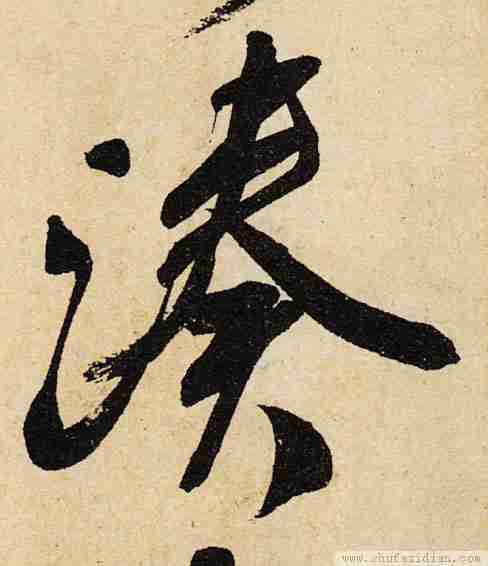 湊
www.shufazidian.com